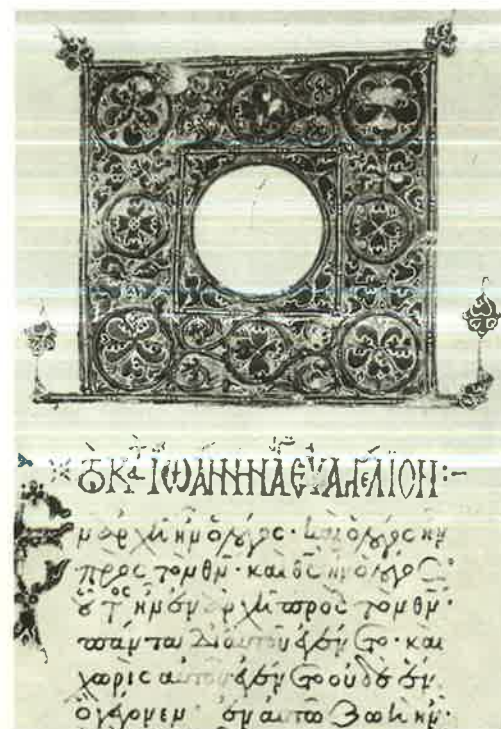 ΙΩΑΝΝΗΝ ΕΥΑΓΓΕΛΙΟΝ:-
Ἐν ἀρχῆ ἦν ὁ λόγος· καὶ ὁ λόγος ἦν
πρὸς τὸν θν· καὶ θς ἦν ὁ λόγος·
οὗτος ἦν ἐν ἀρχῆ πρὸς τὸν θν·
πάντα δι αὐτοῦ ἐγένετο· καὶ
χωρὶς αὐτοῦ ἐγένετο οὐδὲ ἓν
ὃ γέγονεν· ἐν αὐτῶ ζωὴ ἦν·